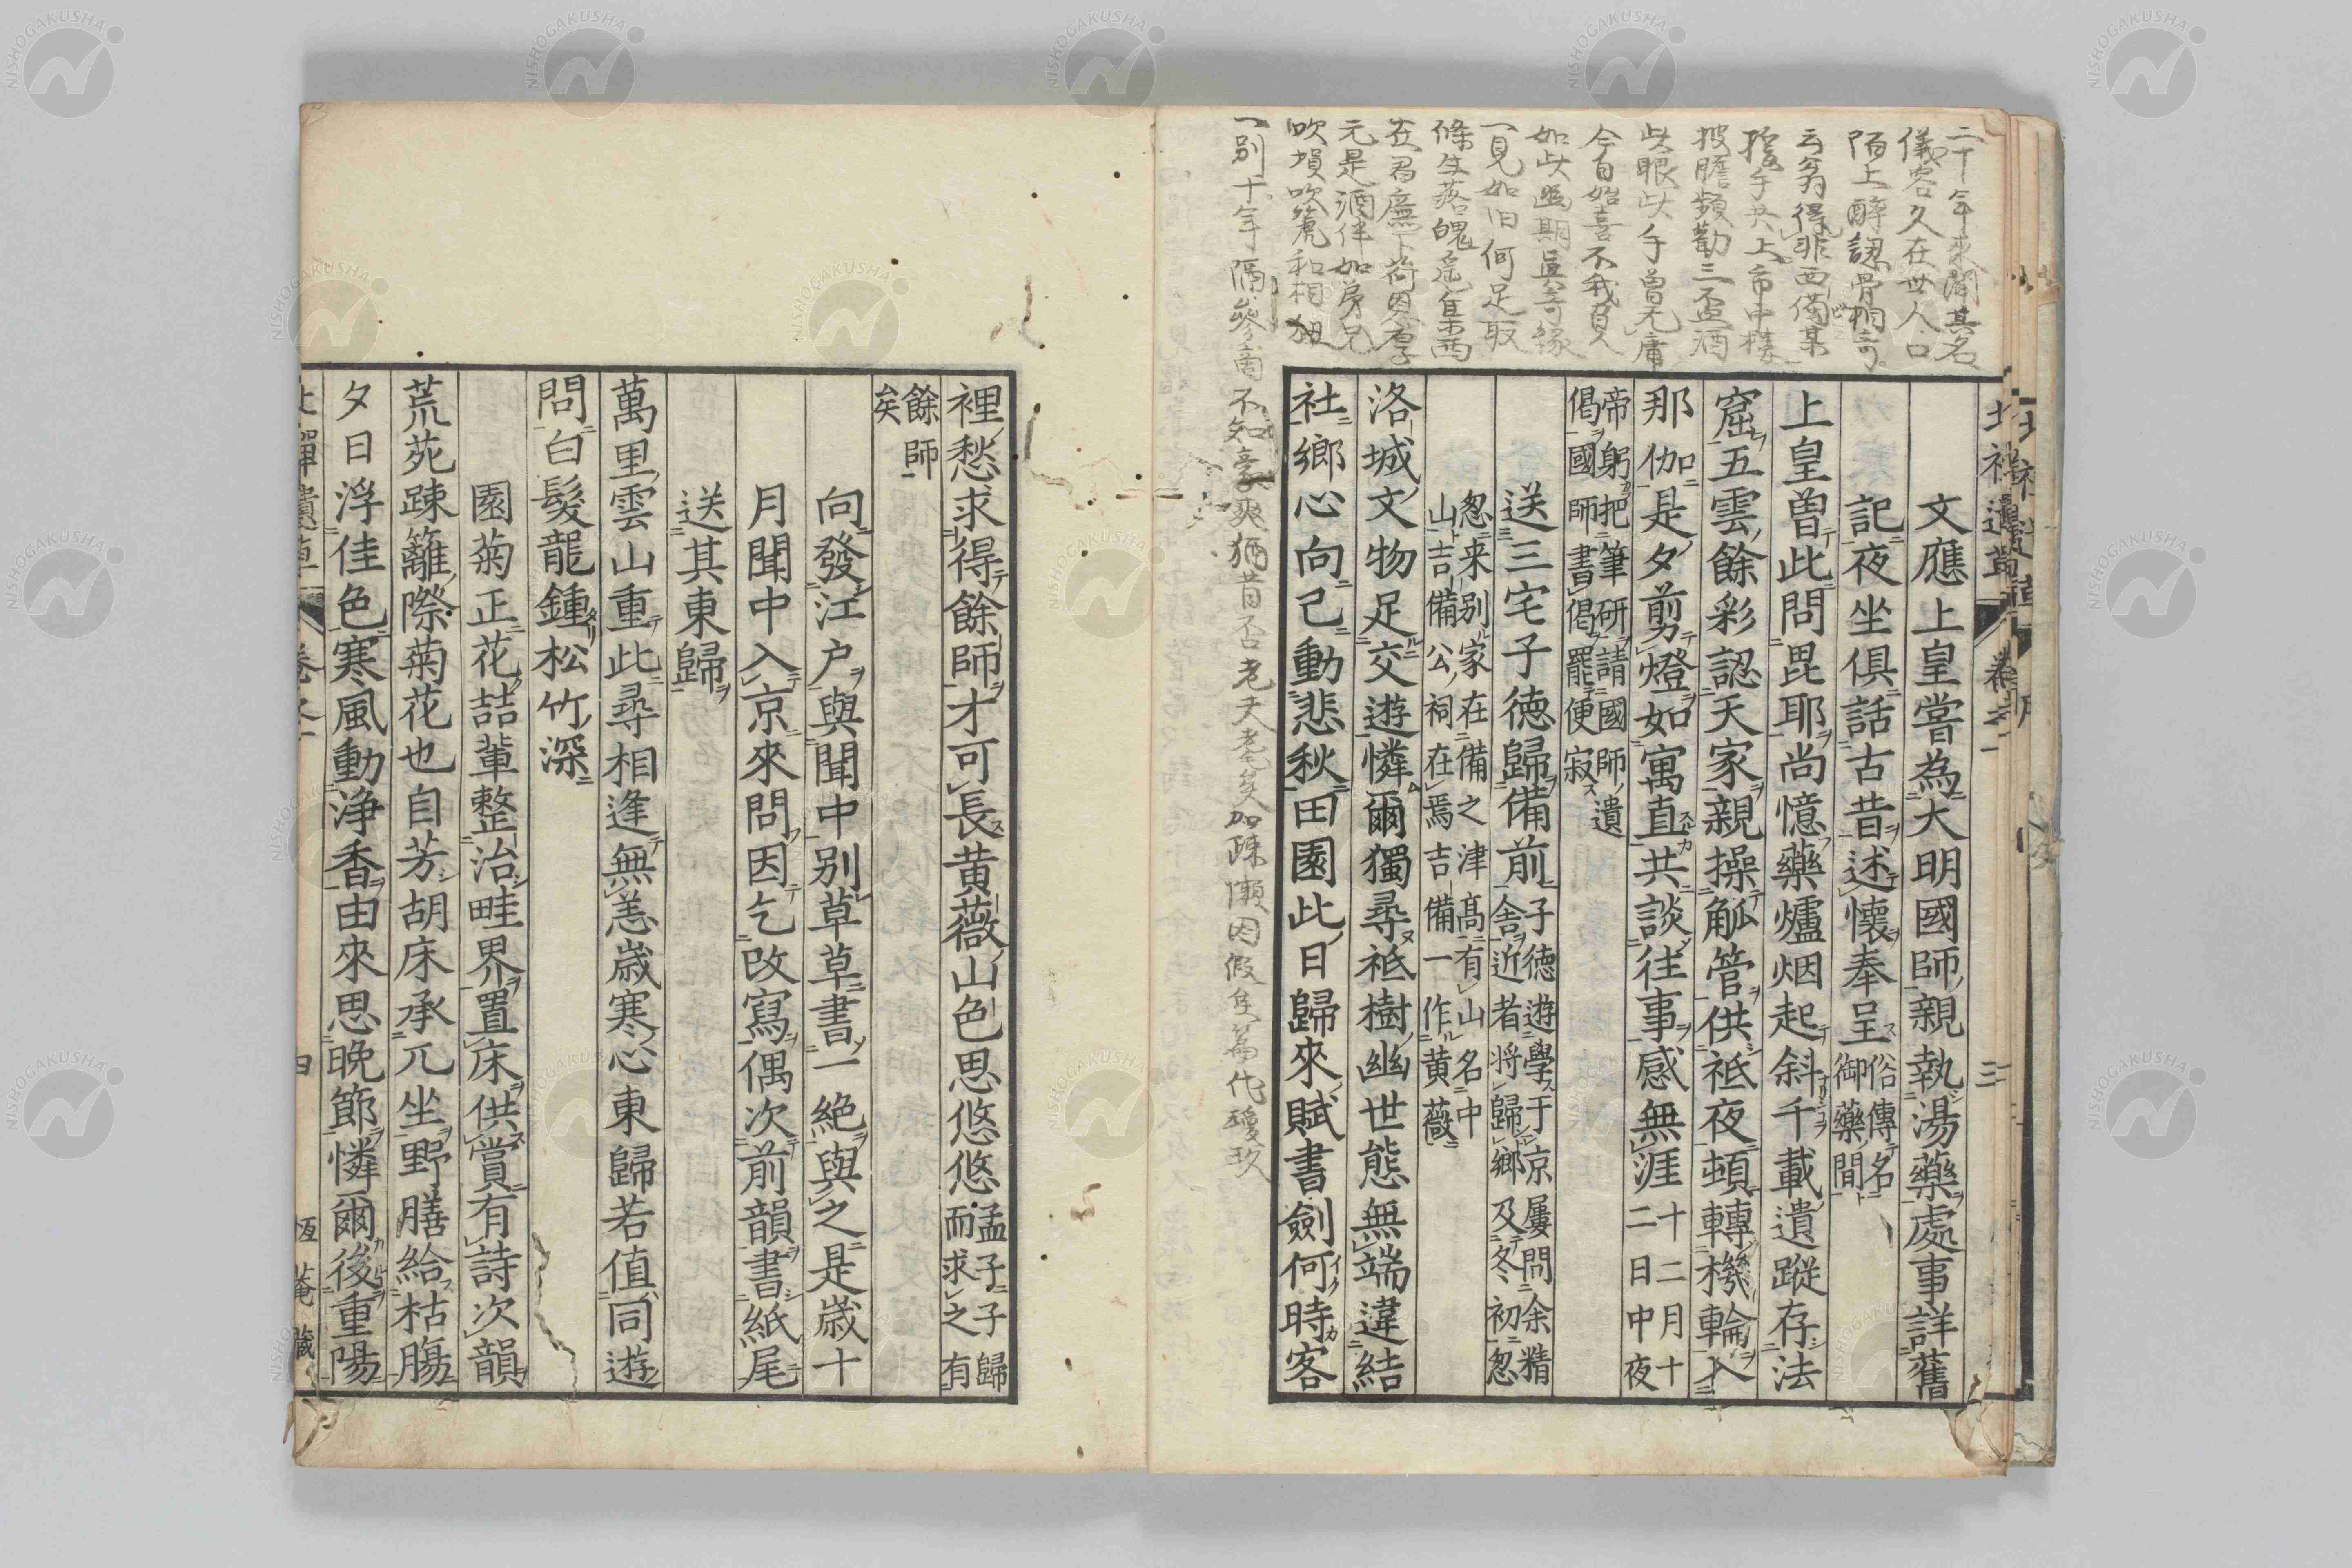 二十年来聞其名
儀容久在世人口
陌上醉認骨相奇
云翁得非西備某
披膽頻勸三盃酒
此眼此手曽无庸
今日始喜不我負
如此幽期真奇縁
一見如旧何足取
元是酒伴如弟兄
吹塤吹篪和相
一別十年隔參商不知豪爽猶昔否老夫耄矣加疎懶因假隻篇代瓊玖
文應上皇嘗為大明國師親執湯藥處事詳舊
記夜坐俱話古昔述懷奉呈俗傳名
御藥間
上皇曽此問毘耶尚憶藥爐烟起斜千載遺蹤存法
窟五雲餘彩認天家親操觚管供祗夜頓轉機輪入
那伽是夕剪燈如寓直共談往事感無涯十二月十
二日中夜
帝躬把筆研請國師遺
偈國師書偈罷便寂
送三宅子德歸備前子德遊學于京屢問余精
舎近者将歸鄉及冬初怱
怱来別家在備之津髙有山名中
山吉備公祠在焉吉備一作黄薇
洛城文物足交遊憐爾獨尋祗樹幽世態無端違結
社鄉心向己動悲秋田園此日歸來賦書劍何時客
裡愁求得餘師才可長黄薇山色思悠悠孟子子歸
而求之有
餘師
矣
向發江户與聞中別草草書一絶與之是歳十
月聞中入京來問因乞改寫偶次前韻書紙尾
送其東歸
萬里雲山重此尋相逢無恙歳寒心東歸若値同遊
問白髮龍鍾松竹深
園菊正花喆輩整治畦界置床供賞有詩次韻
荒苑踈籬際菊花也自芳胡床承兀坐野膳給枯膓
夕日浮佳色寒風動浄香由來思晩節憐爾後重陽